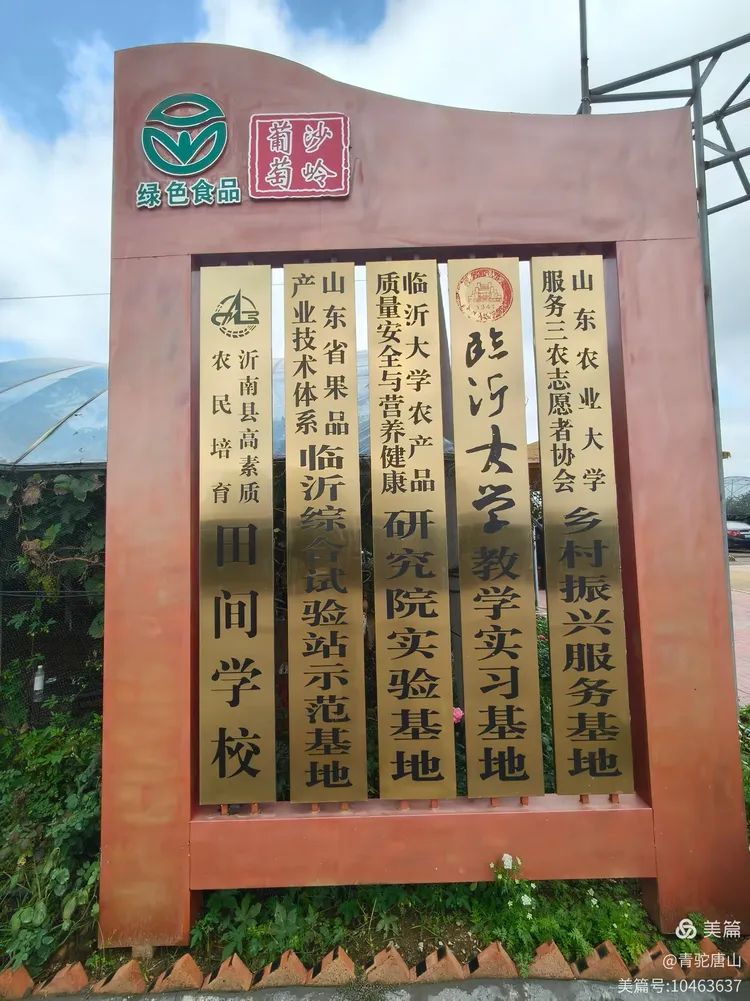 绿色食品
沙岭
葡萄
山东农业大学
服务三农志愿者协会
乡村振兴服务基地
临沂大学
教学实习基地
临沂大学农产品
质量安全与营养健康
研究院实验基地
山东省果品
产业技术体系
临沂综合试验站示范基地
沂南县高素质
农民培育
田间学校
美篇
@青驼唐山
美篇号:10463637